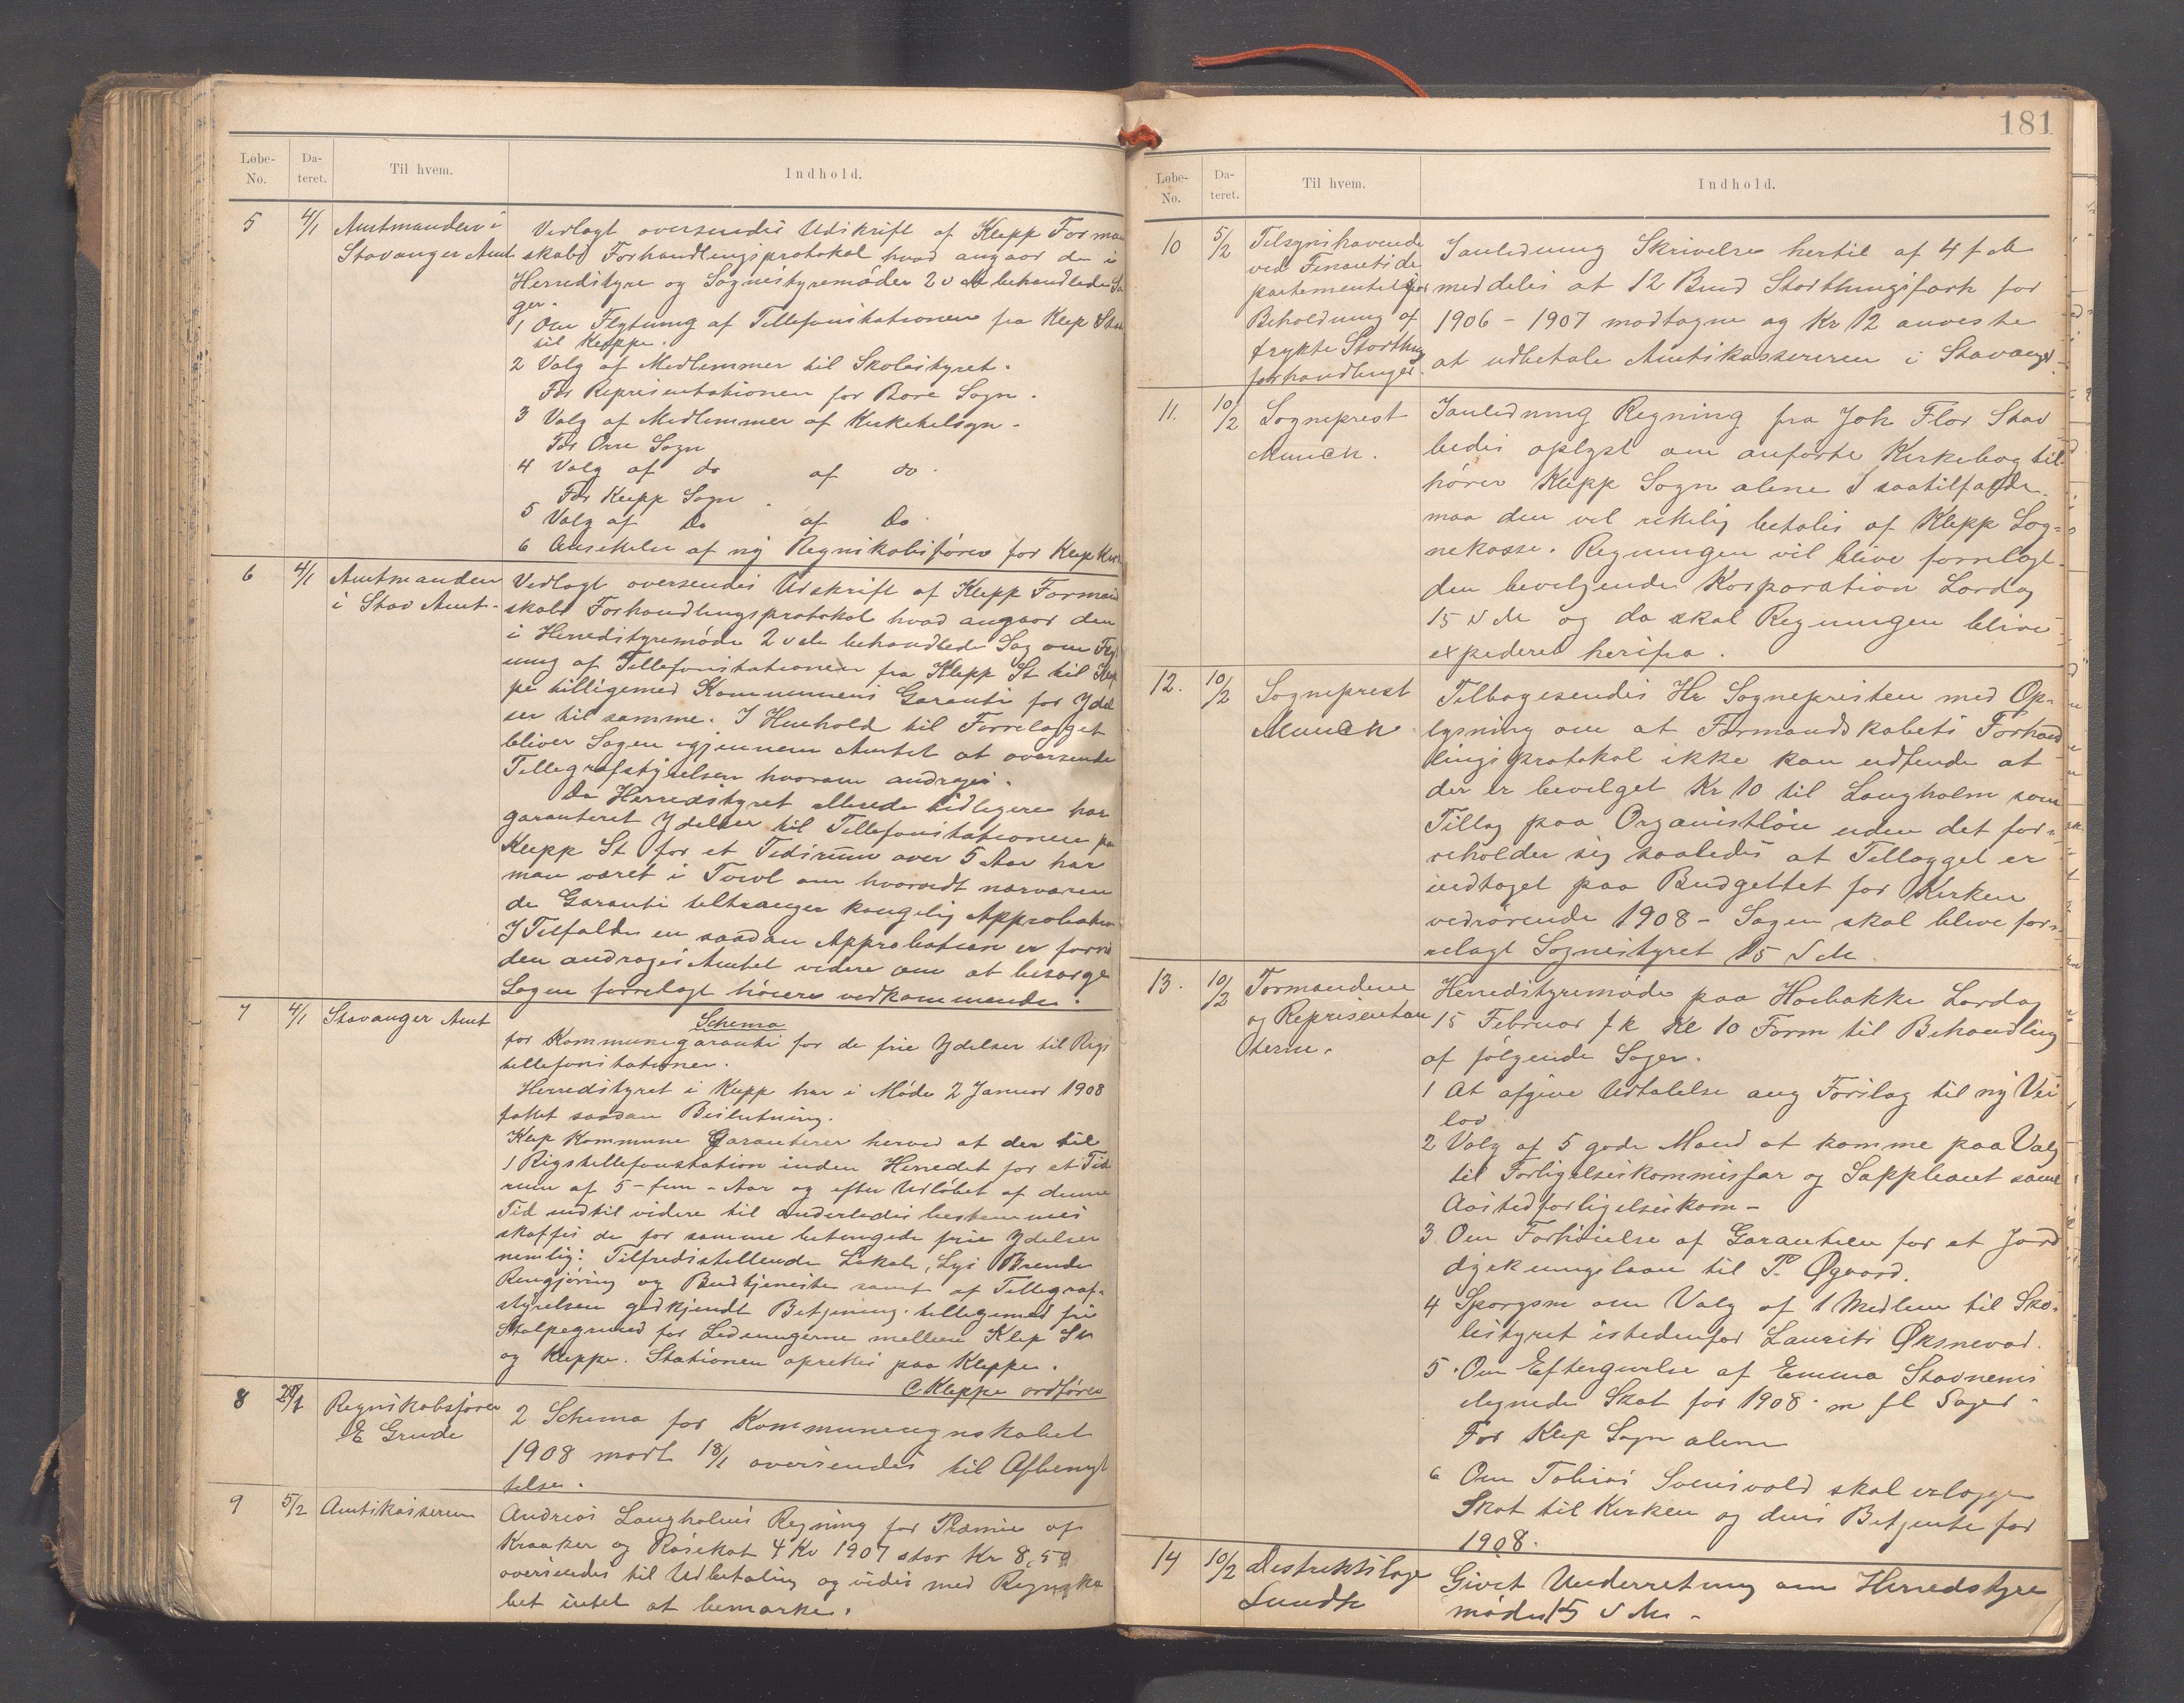 Løbe-
No.
Da-
teret.
Til hvem.
Indhold.
5 4/1 Amtmanden i Vedlagt oversendes Udskrift af Klepp Forman
Stavanger Amt skabs Forhandlingsprotokol hvad angaar de i
Herredstyre og Sognestyremøder 2 d M behandlede Sa
ger.
1 Om Flytning af Tellefonstationen fra Klep St
til Kleppe.
2 Valg af Medlemmer til Skolestyret.
For Representationen for Bore Sogn.
3 Valg af Medlemmer af Kirketilsyn.
For Orre Sogn
4 Valg af do af do.
For Klepp Sogn
5 Valg af Do af Do.
6 Ansettelse af ny Regnskabsfører for Klep
6 4/1 Amtmanden Vedlagt oversendes Udskrift af Klepp Formand
i Stav Amt. skabs Forhandlingsprotokol hvad angaar den
i Herredstyremøde 2 d M behandlede Sag om Fly
ning af Tellefonstationen fra Klepp St til Klep
pe tilligemed Kommunens Garanti for Ydel
ser til samme. I Henhold til Forrelagget
bliver Sagen igjennem Amtet at oversende
Tellegrafstyrelsen hvorom andrages.
Da Herredstyret allerede tidligere har
garanteret Ydelser til Tellefonstationen paa
Klepp St for et Tidsrum over 5 Aar har
man været i Tvivl om hvorvidt nærværen
de Garanti tiltrænger kongelig Approbation
I Tilfælde en saadan Approbation er forn
den andrages Amtet videre om at besørge
Sagen forrelagt høiere vedkommende.
7 4/1 Stavanger Amt Schema
for Kommunegaranti for de frie Ydelser til Rigs
tellefonstationer.
Herredstyret i Klepp har i Møde 2 Januar 1908
fattet saadan Beslutning.
Klep Kommune Garanterer herved at der til
1 Rigstellefonstation inden Herredet for et Tids
rum af 5 - fem - Aar og efter Udløbet af denne
Tid indtil videre til anderledes bestemmes
skaffes de for samme betingede frie Ydelser
nemlig: Tilfredsstillende Lokale, Lys Brende
Rengjøring og Budtjeneste samt af Tellegraf-
styrelsen godkjendt Betjening. tilligemed fri
Stolpegrund for Ledningerne mellem Klep St
og Kleppe. Stationen oprettes paa Kleppe.
C Kleppe ordfører
8 Regnskabsfører 2 Schema for Kommuneregnskabet
E Grude 1908 modt 18/1 oversendes til Afbenyt
telse.
9 5/2 Amtskasseren Andreas Langholms Regning for Præmie af
Kraaker og Røsekat 4 Kv 1907 stor Kr 8,50
oversendes til Udbetaling og vides med Regnska
bet intet at bemærke.
181
Løbe-
No.
Da-
teret.
Til hvem.
Indhold.
10 5/2 Tilsynshavende I anledning Skrivelse hertil af 4 f M
ved Finantsde
partementets for meddeles at 12 Bind Storthingsforh for
Beholdning af 1906 - 1907 modtagne og Kr 12 anviste
trykte Storthings at udbetale Amtskassereren i Stavanger.
forhandlinger.
11. 10/2 Sogneprest I anledning Regning fra Joh Flor Stav
Munch. bedes oplyst om anførte Kirkebog til
hører Klepp Sogn alene I saatilfælde
maa den vel rettelig betales af Klepp Sog-
nekasse. Regningen vil blive forrelagt
den bevilgende Korporation Lørdag
15 d M og da skal Regningen blive
expederet herifra.
12. 10/2 Sogneprest Tilbagesendes Hr Sognepresten med Op-
Munch lysning om at Formandskabets Forhand
lingsprotokol ikke kan udfinde at
der er bevilget Kr 10 til Langholm som
Tillæg paa Organistløn uden det for-
reholder sig saaledes at Tillægget er
indtaget paa Budgettet for Kirken
vedrørende 1908 - Sagen skal blive for-
relagt Sognestyret 15 d M.
13. 10/2 Formændene Herredstyremøde paa Haabakke Lørdag
og Representan 15 Februar f k Kl 10 Form til Behandling
terne. af følgende Sager.
1 At afgive Udtalelse ang Forslag til ny Vei
lov
2 Valg af 5 gode Mænd at komme paa Valg
til Forligelseskommissær og Suppleant samt
Aastedforligelseskom-
3. Om Forhøielse af Garantien for et Jord
dyrkningslaan til P. Øgaard.
4 Spørgsm om Valg af 1 Medlem til Sko-
lestyret istedenfor Laurits Øksnevad.
5. Om Eftergivelse af Emma Stavnems
ilignede Skat for 1908. m fl Sager.
For Klep Sogn alene
6 Om Tobias Svensvold skal erlægge
Skat til Kirken og dens Betjente for
1908.
14 10/2 Destriktslæge Givet Underretning om Herredstyre
Lundh mødet 15 d M.